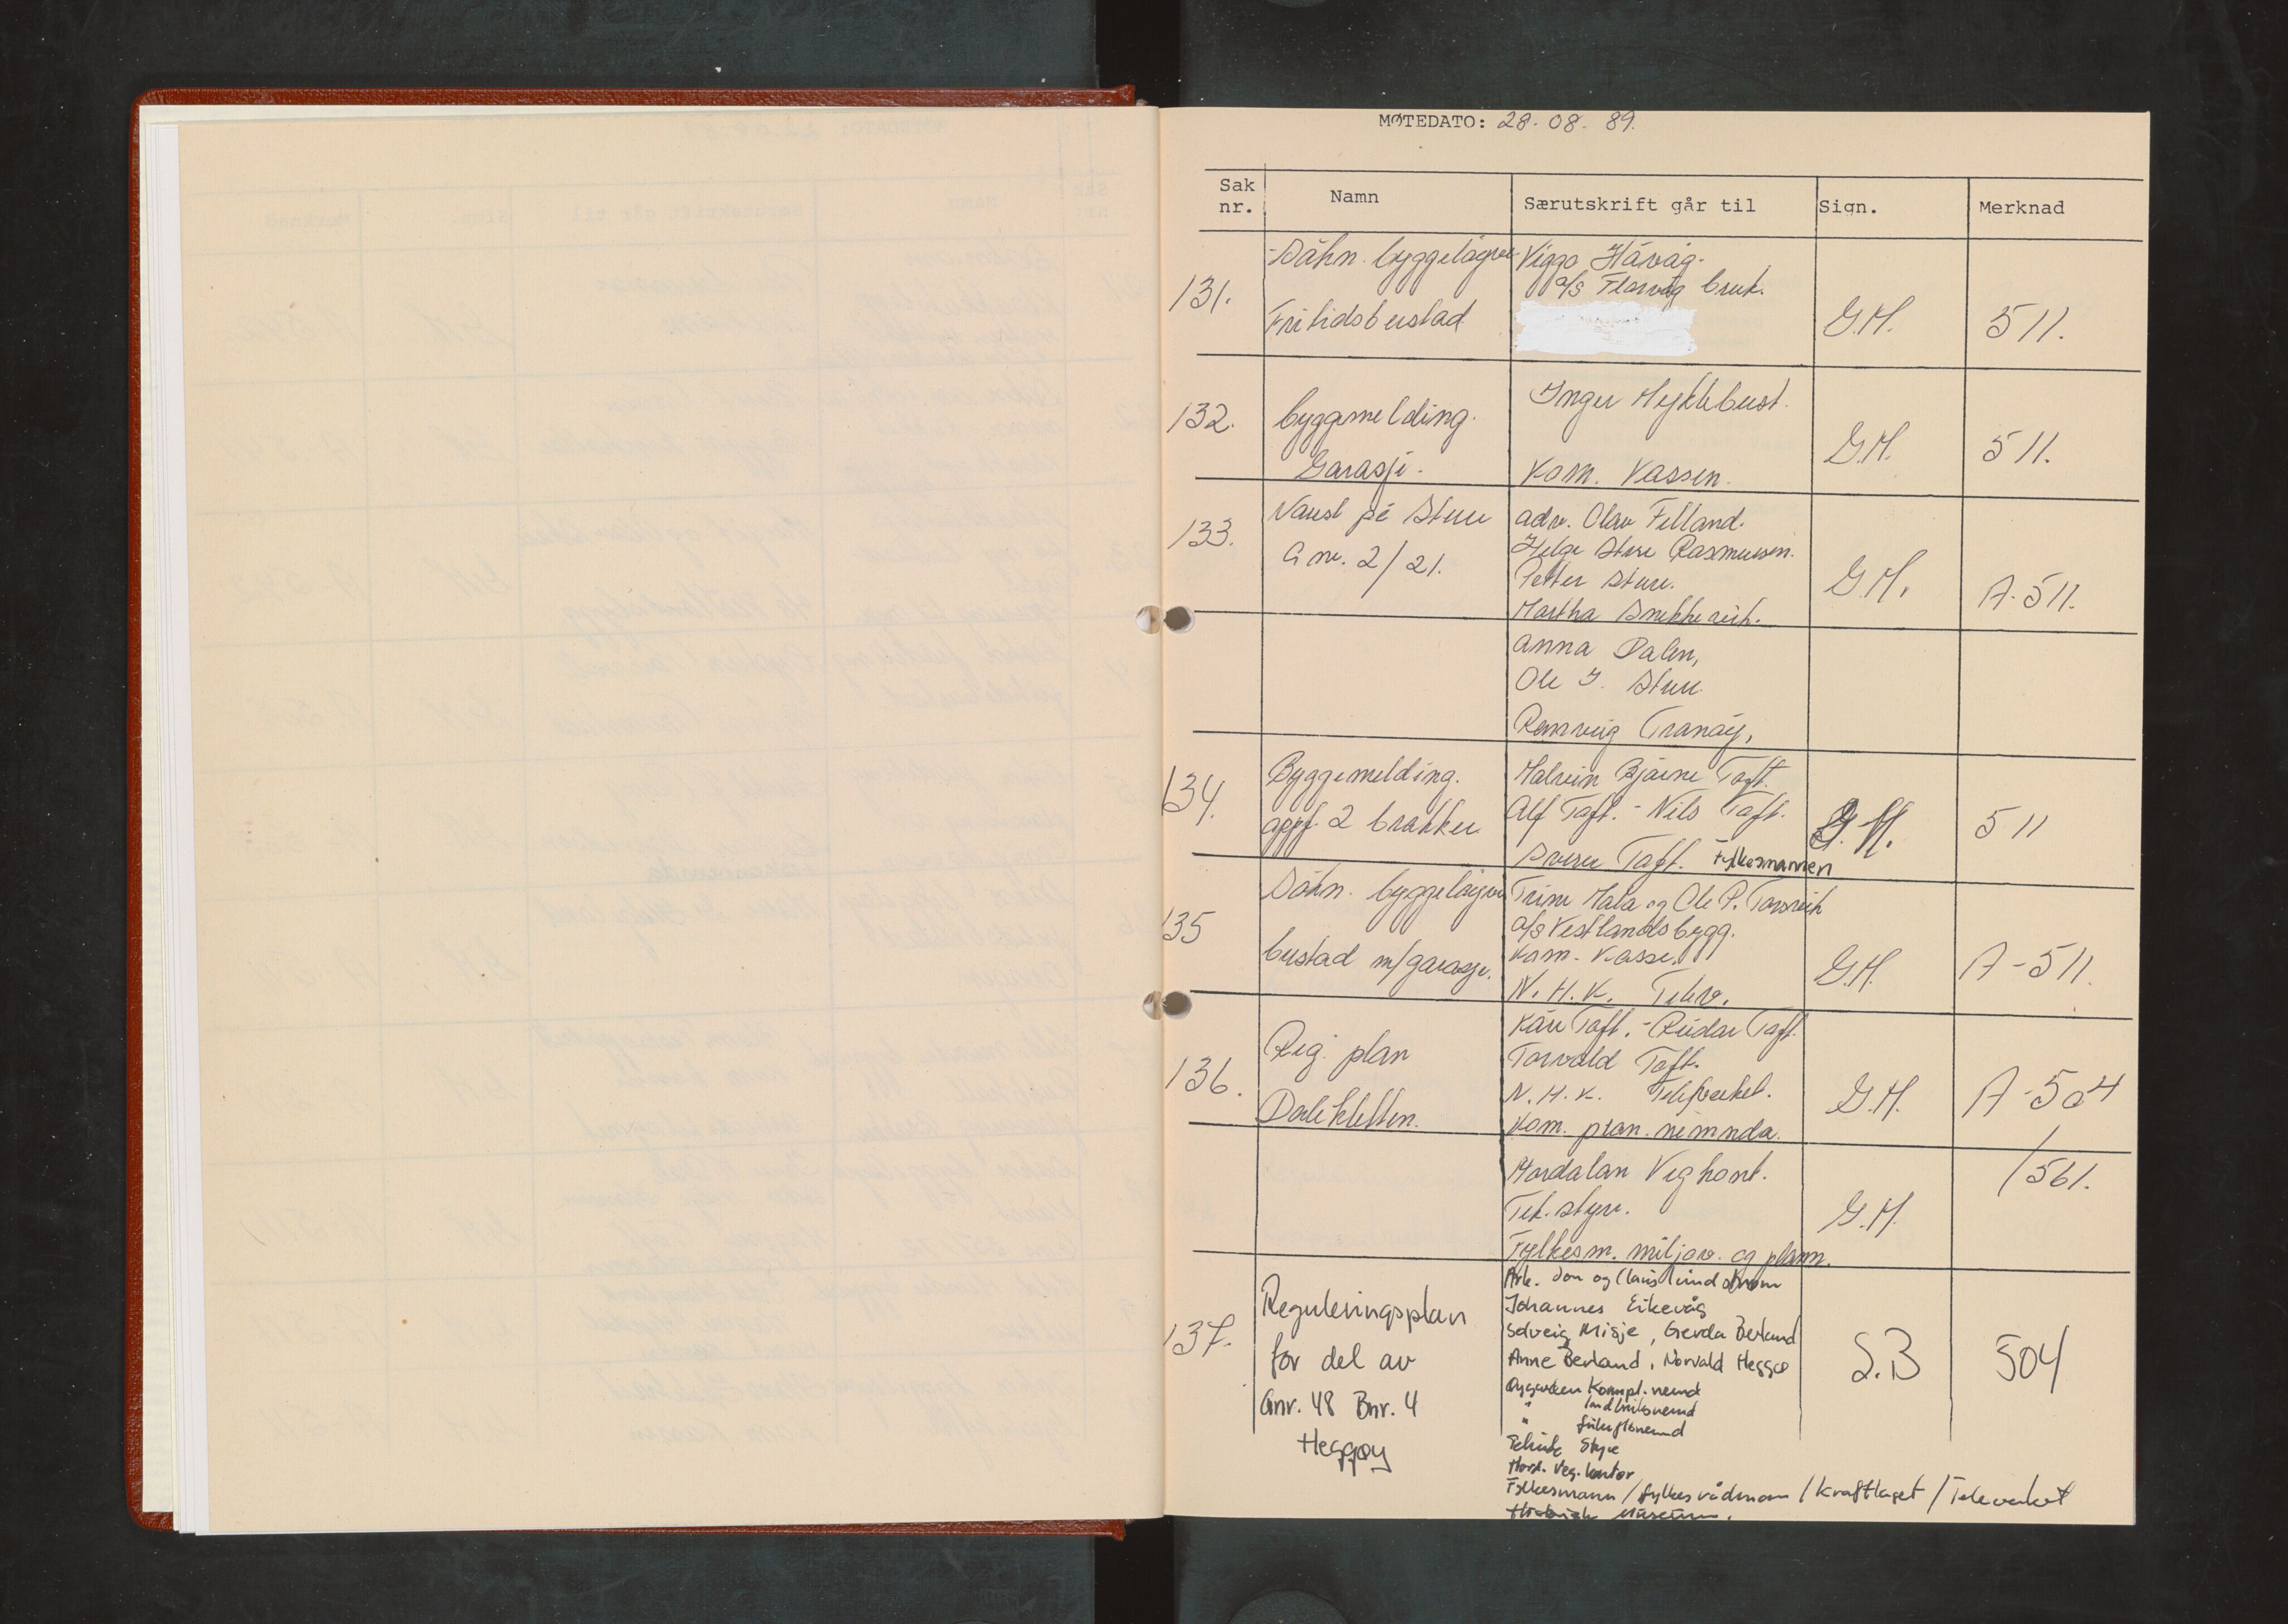 MØTEDATO: 28.08.89.
Sak nr. Namn Særutskrift går til Sign. Merknad
131. Søkn. byggeløyve Fritidsbustad
Viggo Håvåg.
a/s Florvåg bruk.
G.M. 511.
132. Byggemelding. Garasje.
Inger Myklebust.
Kom. Kassen.
G.M. 511.
133. Naust på Sture
G nr. 2/21.
adv. Olav Felland.
Helge Sture Rasmussen.
Petter Sture.
Martha Snekkevik.
G.M. A-511.
Anna Dalen,
Ole J. Sture.
Rannveig Tranøy,
134. Byggemelding.
appf. 2 brakker
Malvin Bjarne Toft.
Alf Toft. - Nils Toft.
Sverre Toft. Fylkesmannen
G.M. 511
135 Søkn. byggeløyve
bustad m/garasje.
Trine Mala og Ole P. Torsvik
a/s Vestlandsbygg.
Kom. Kasse.
N.H.K. Telev.
G.M. A-511.
136. Reg. plan
Dalekletten.
Kåre Toft. - Reidar Toft.
Torvald Toft.
N.H.K. Televerket.
Kom. plan. nemnda.
G.M. A-504
Hordaland Vegkont.
Tek. styre.
Fylkesm. miljøv. og plann.
G.M. /561.
137. Reguleringsplan
for del av
Gnr. 48 Bnr. 4
Heggøy
Ark. Jon og Claus Lindstrøm
Johannes Eikevåg
Solveig Misje, Gerda Berland
Anne Berland, Norvald Heggø
Øygarden Kompl. nemnd
" landbruksnemnd
" friluftsnemnd
Teknisk Styre
Hord. Veg.kontor
Fylkesmann / fylkesrådmann / Kraftlaget / Televerket
Historisk Museum.
S.B 504